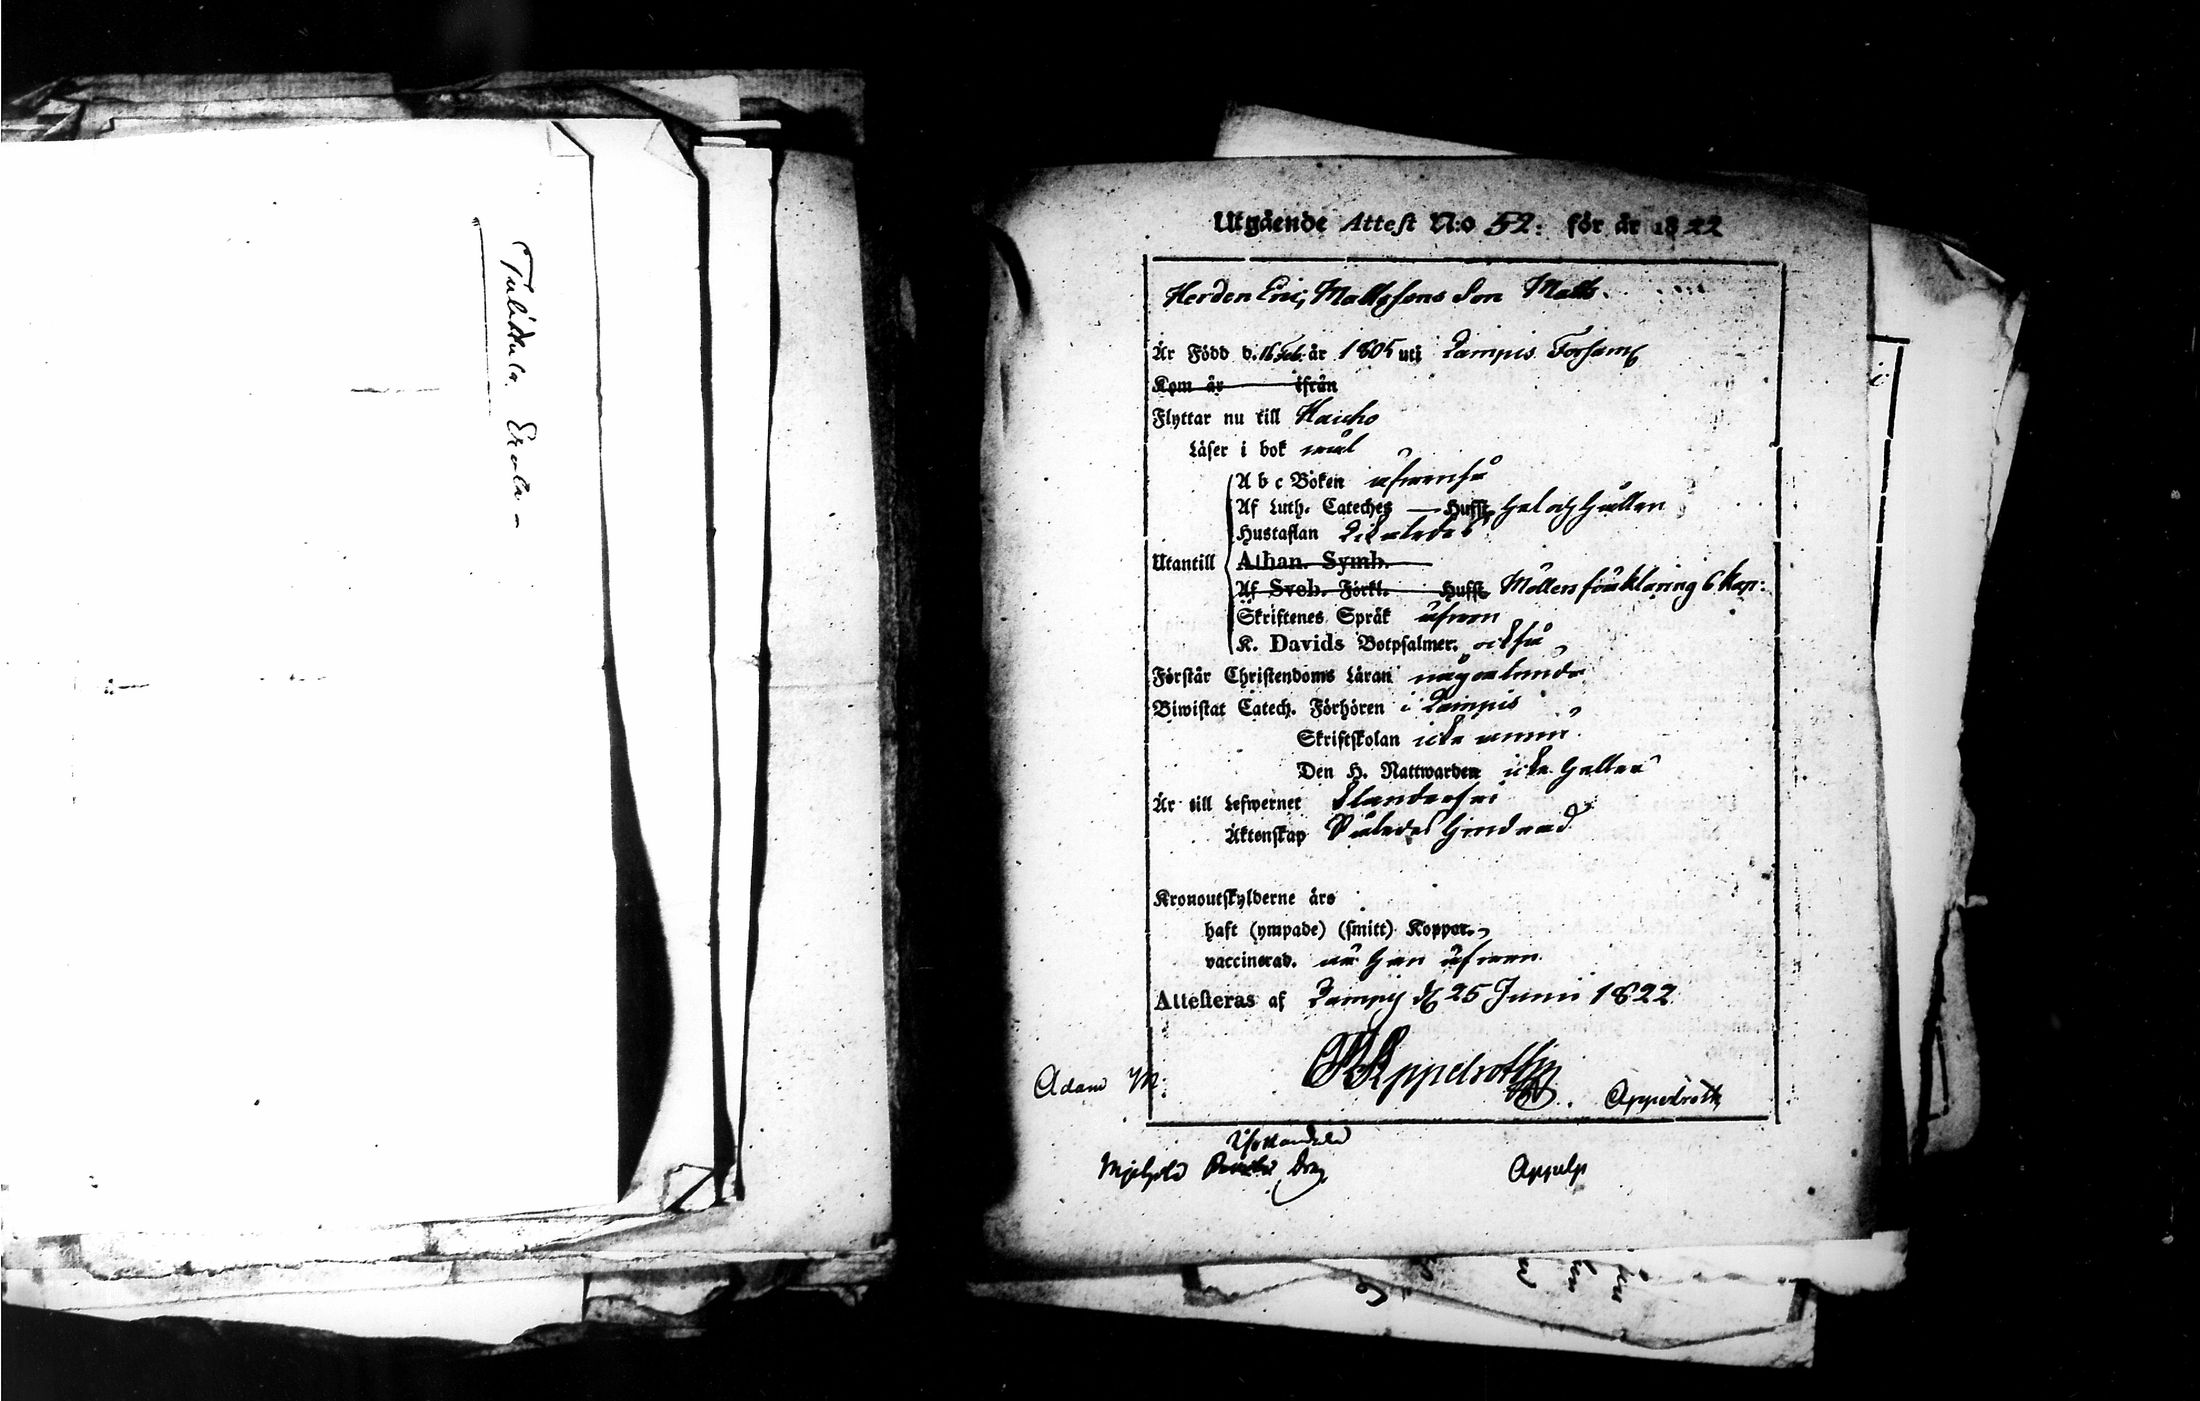 Tulikkula Erola
Utgående Attest N:o 52. för år 1822
Herden Eric Mattssons Son Matts.
Är Född d. 16 Feb. år 1805 uti Lampis Församl
Kom år ifrån
Flyttar nu till Hauho
Läser i bok wäl
Abc Boken äfwenså
Af Luth. Cateches — Hufst. hel och hållen
Hustaflan likaledes
Utantill
Athan. Symb.
Af Sveb. Förkl. Hufst. Möllers förklaring 6 Kap:
Skriftenes Språk äfwen
K. Davids Botpsalmer. också
Förstår Christendoms Läran någorlunda
Biwistat Catech. Förhören i Lampis
Skriftskolan icke ännu
Den H. Nattwarden icke heller
Är till Lefwernet klanderfri
Äktenskap
Kronoutskylderne äro
haft (ympade) (smitt) Koppor.
vaccinerad. är han äfwen
Attesteras af Lampis d. 25 Junii 1822
Appelroth
Adam M: Appelroth
Appelp